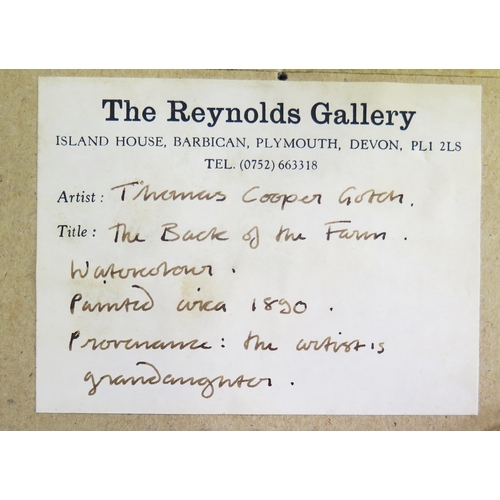 The Reynolds Gallery
ISLAND HOUSE, BARBICAN, PLYMOUTH, DEVON, PL1 2LS
TEL. (0752) 663318
Artist: Thomas Cooper Gotch.
Title: The Back of the Farm.
Watercolour.
Painted circa 1890.
Provenance: the artist's
grandaughter.